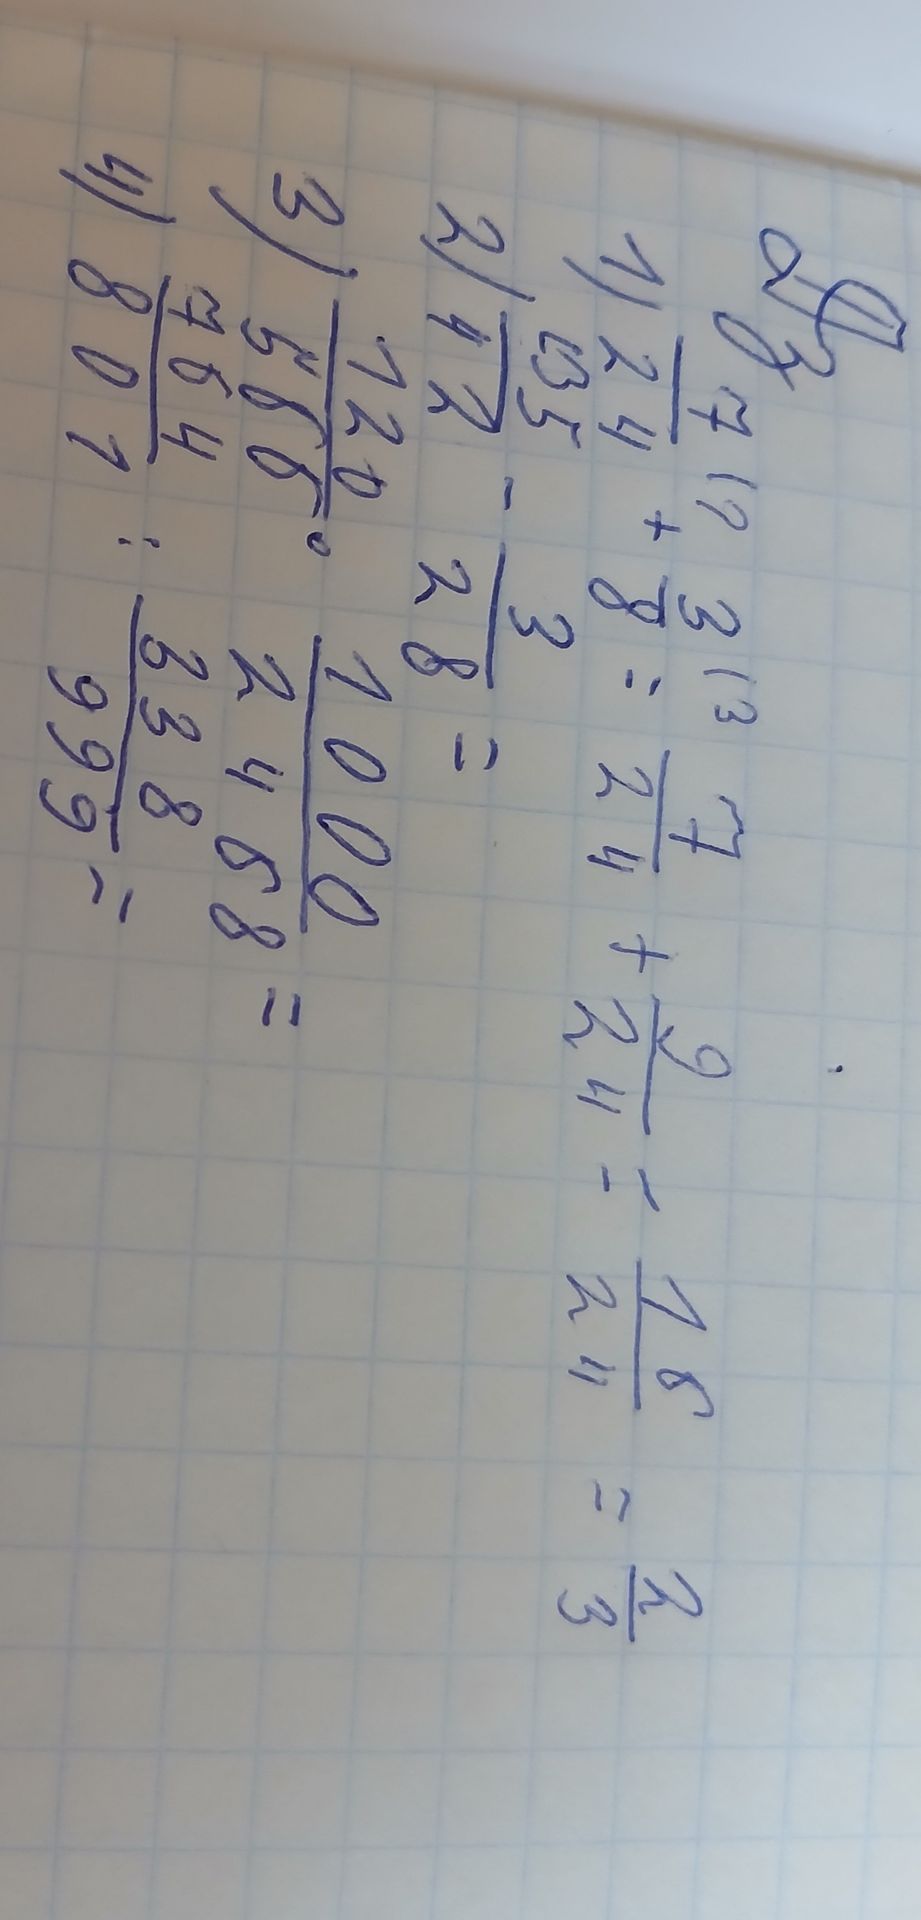 Дз
1) 7/24 + 3/8 = 7/24 + 9/24 = 16/24 = 2/3
2) /42 - 3/28 =
3) 120/566 · 1000/2468 =
4) 764/801 : 338/999 =